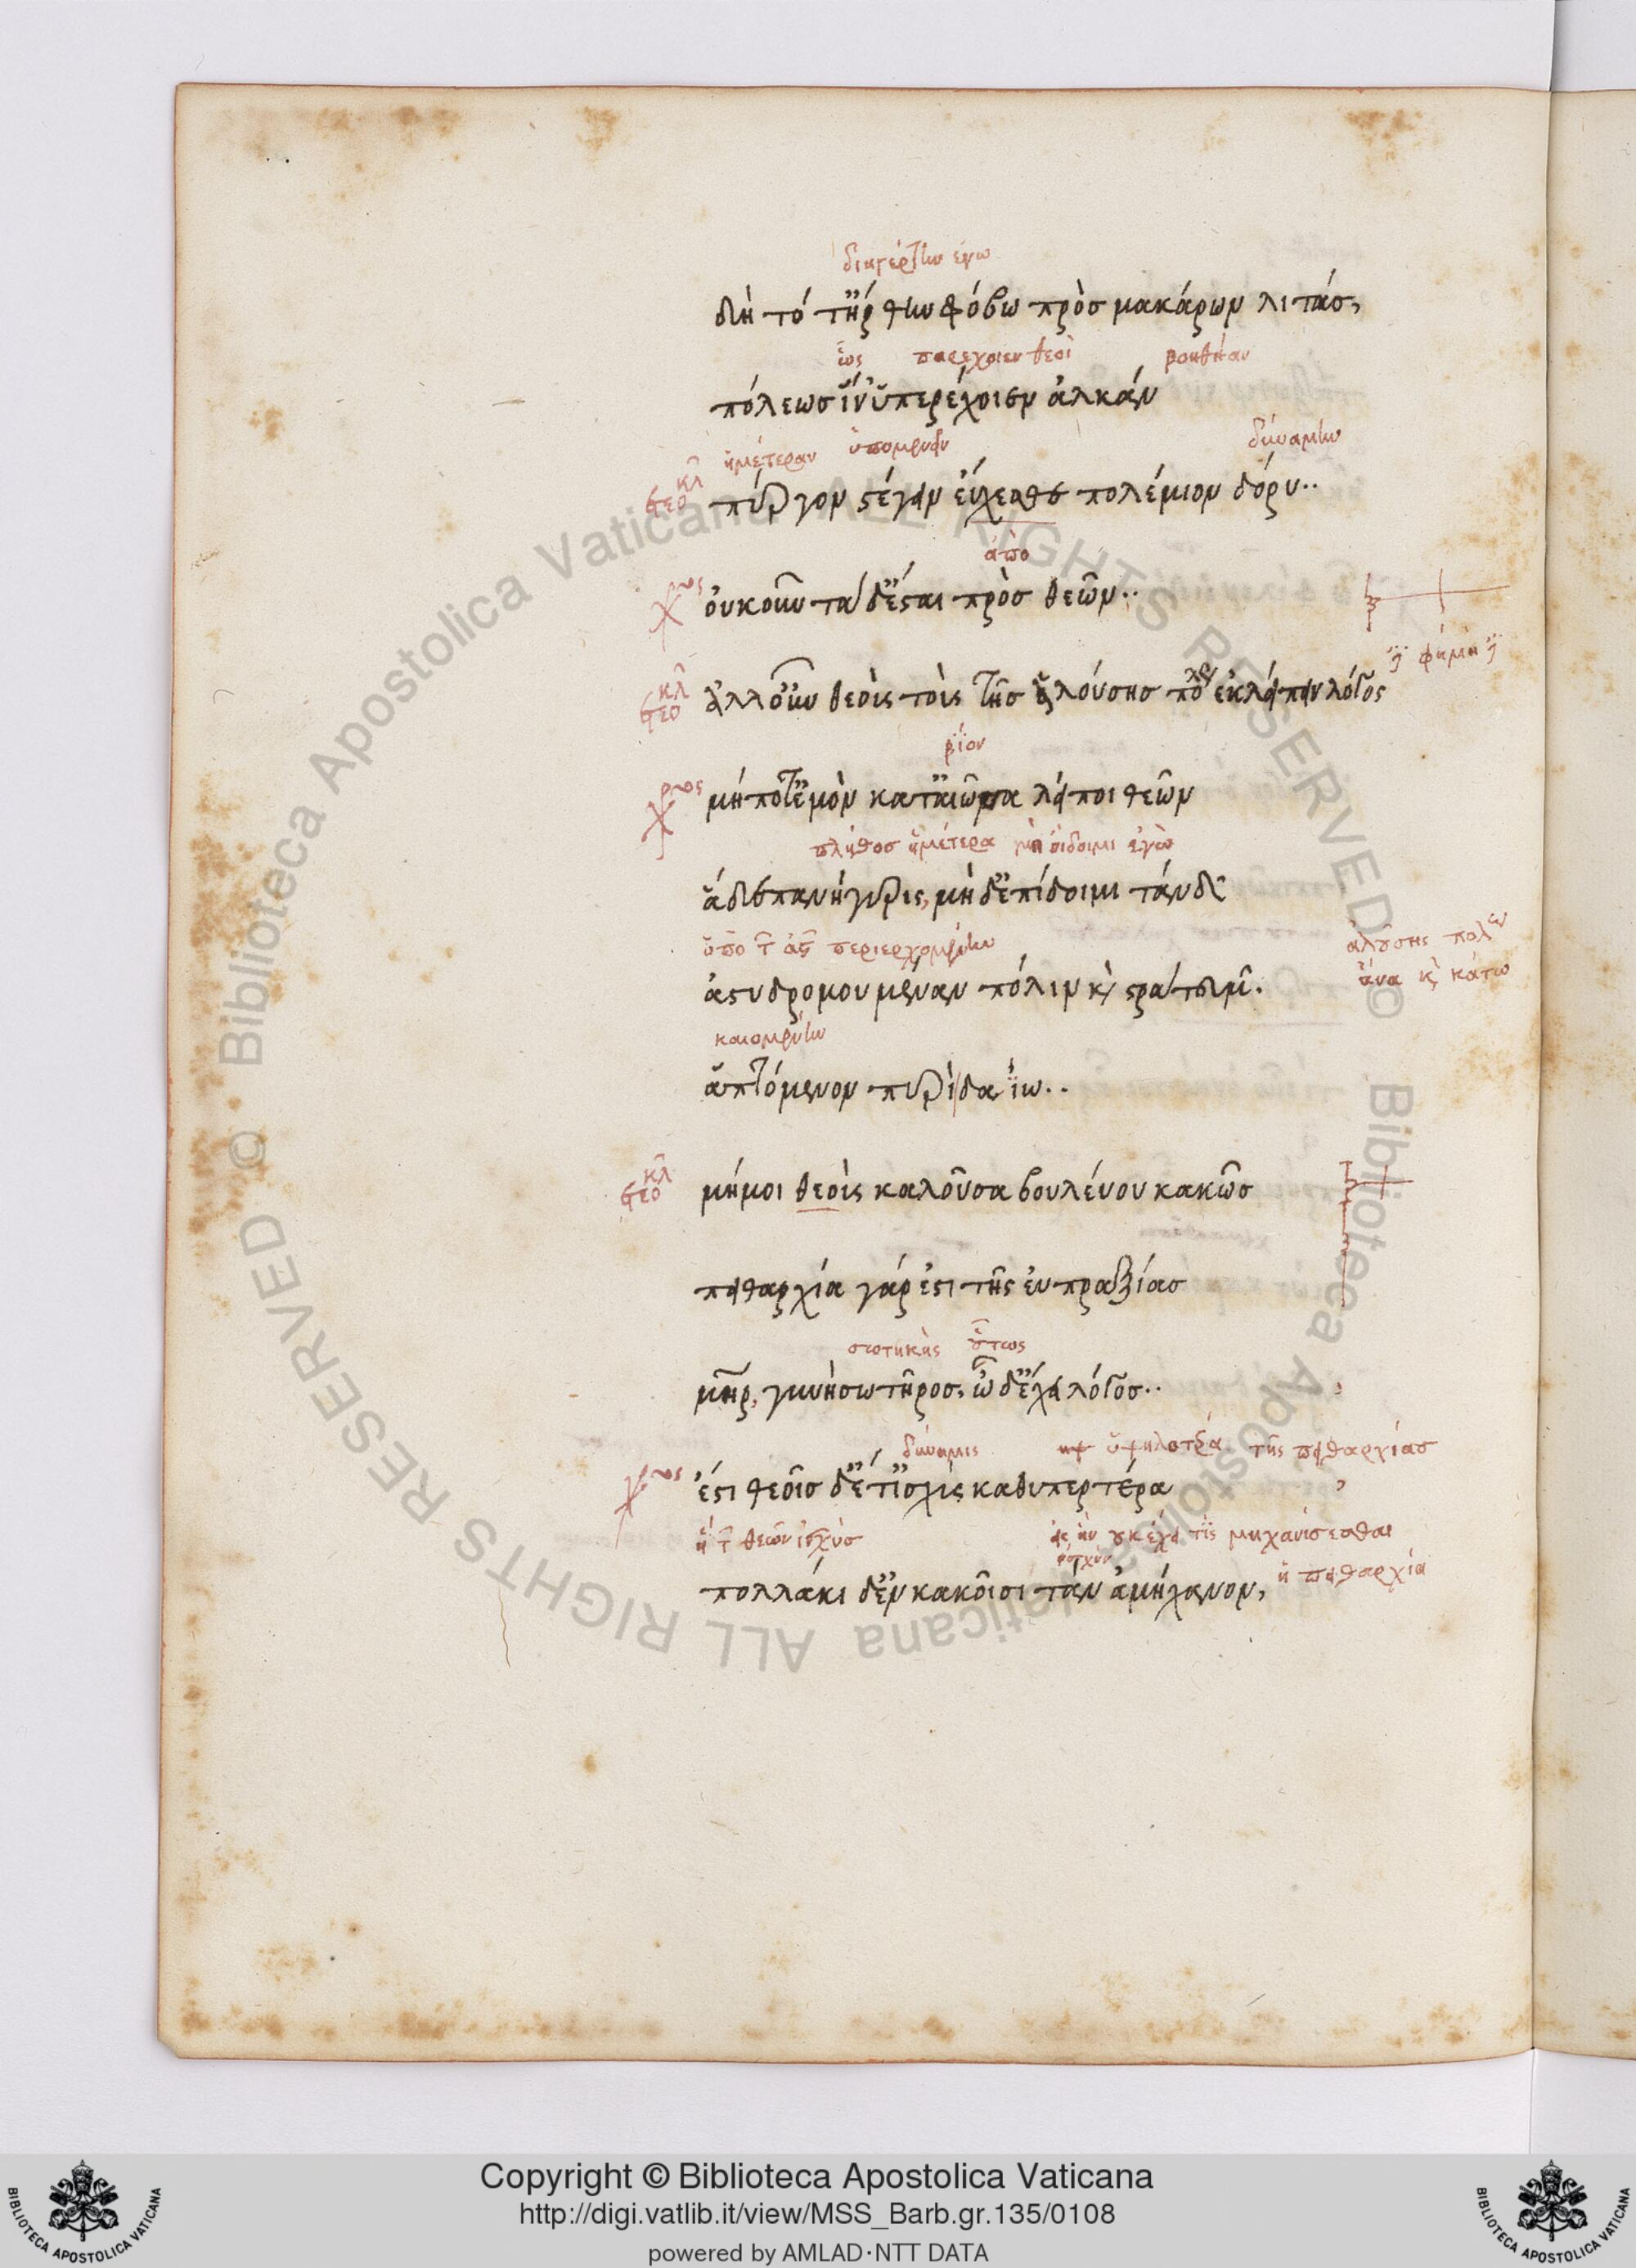 διηγέρθην ἐγω
δὴ τότ' ἤρθην φόβω πρὸσ μακάρων λιτάσ,
ἕως παρεχοιεν θεοὶ βοηθειαν
πόλεωσ ἵν' ὑπερέχοιεν ἀλκάν
ἡμέτεραν ὑπομένειν δύναμιν
ετεο κλ πύργον στέγειν εὔχεσθε πολέμιον δόρυ..
ἀπο
χορος οὐκοῦν τάδ' ἔσται πρὸσ θεῶν..
ἡ φήμη
ετεο κλ ἀλλ' οὖν θεοὺς τοὺς τῆσ ἁλούσησ πόλεως ἐκλείπειν λόγος
βίον
χορος μήποτ' ἐμὸν κατ' αἰῶνα λείποι θεῶν
πλῆθοσ ἡμέτερα μὴ ἴδοιμι ἐγὼ
ἅδε πανήγυρις, μηδ' ἐπίδοιμι τάνδε
ὑπο τ περιερχομένην
ἁλούσης πολεων
ἄνα κὶ κάτω
ἀστυδρομουμέναν πόλιν κὶ στράτευμ.
καιομένην
ἁπτόμενον πυρὶ δαΐω..
ετεο κλ μή μοι θεοὺς καλοῦσα βουλεύου κακῶσ
πειθαρχία γάρ ἐστι τῆς εὐπραξίασ
οὕτως
μηρ, γυνὴ σωτῆροσ, ὧδ' ἔχει λόγοσ..
δύναμις ὑψηλοτέρα τῆς πειθαρχίασ
χορος ἔστι θεοῖσ δ' ἔτ' ἰσχὺς καθυπερτέρα
ἡ τ θεῶν ἰσχὺσ οὐκ ἔχει τίς μηχανίσεσθαι
ἡ πειθαρχία
πολλάκι δ' ἐν κακοῖσι τὰν ἀμήχανον,
Copyright © Biblioteca Apostolica Vaticana
http://digi.vatlib.it/view/MSS_Barb.gr.135/0108
powered by AMLAD·NTT DATA
BIBLIOTECA APOSTOLICA VATICANA
BIBLIOTECA APOSTOLICA VATICANA
Biblioteca Apostolica Vaticana ALL RIGHTS RESERVED ©
Biblioteca Apostolica Vaticana ALL RIGHTS RESERVED ©